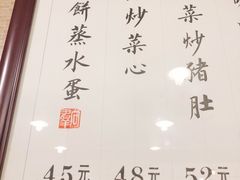 菜炒豬肚
炒菜心
餅蒸水蛋
52元
48元
45元